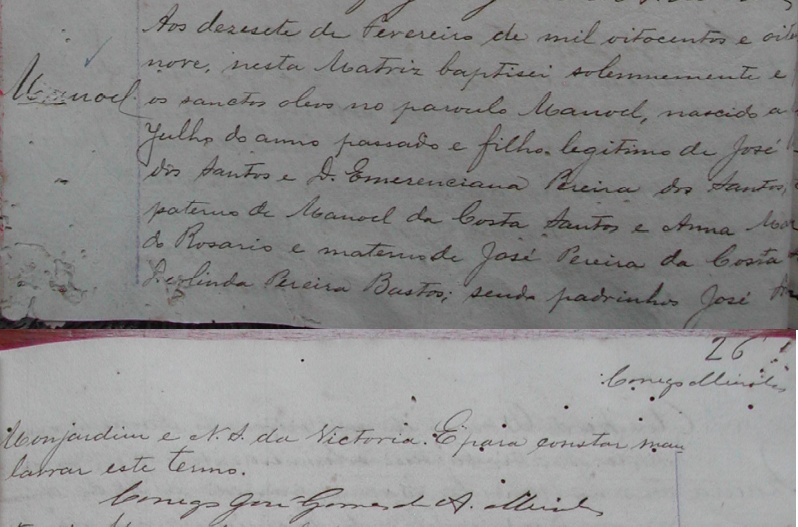 Aos dezesete de Fevereiro de mil oitocentos e oite
nove, nesta Matriz baptisei solemnemente e
Manoel
os sanctos oleos no parvulo Manoel, nascido a
Julho do anno passado e filho legitimo de José
dos Santos e D. Emerenciana Pereira dos Santos,
paterno de Manoel da Costa Santos e Anna Mar
do Rosario e materno de José Pereira da Costa
Deolinda Pereira Bastos; sendo padrinhos José
26
Conego Meirelles
Monjardim e N. S. da Victoria. E para constar man
lavrar este termo.
Conego José Gomes de A. Meirelles